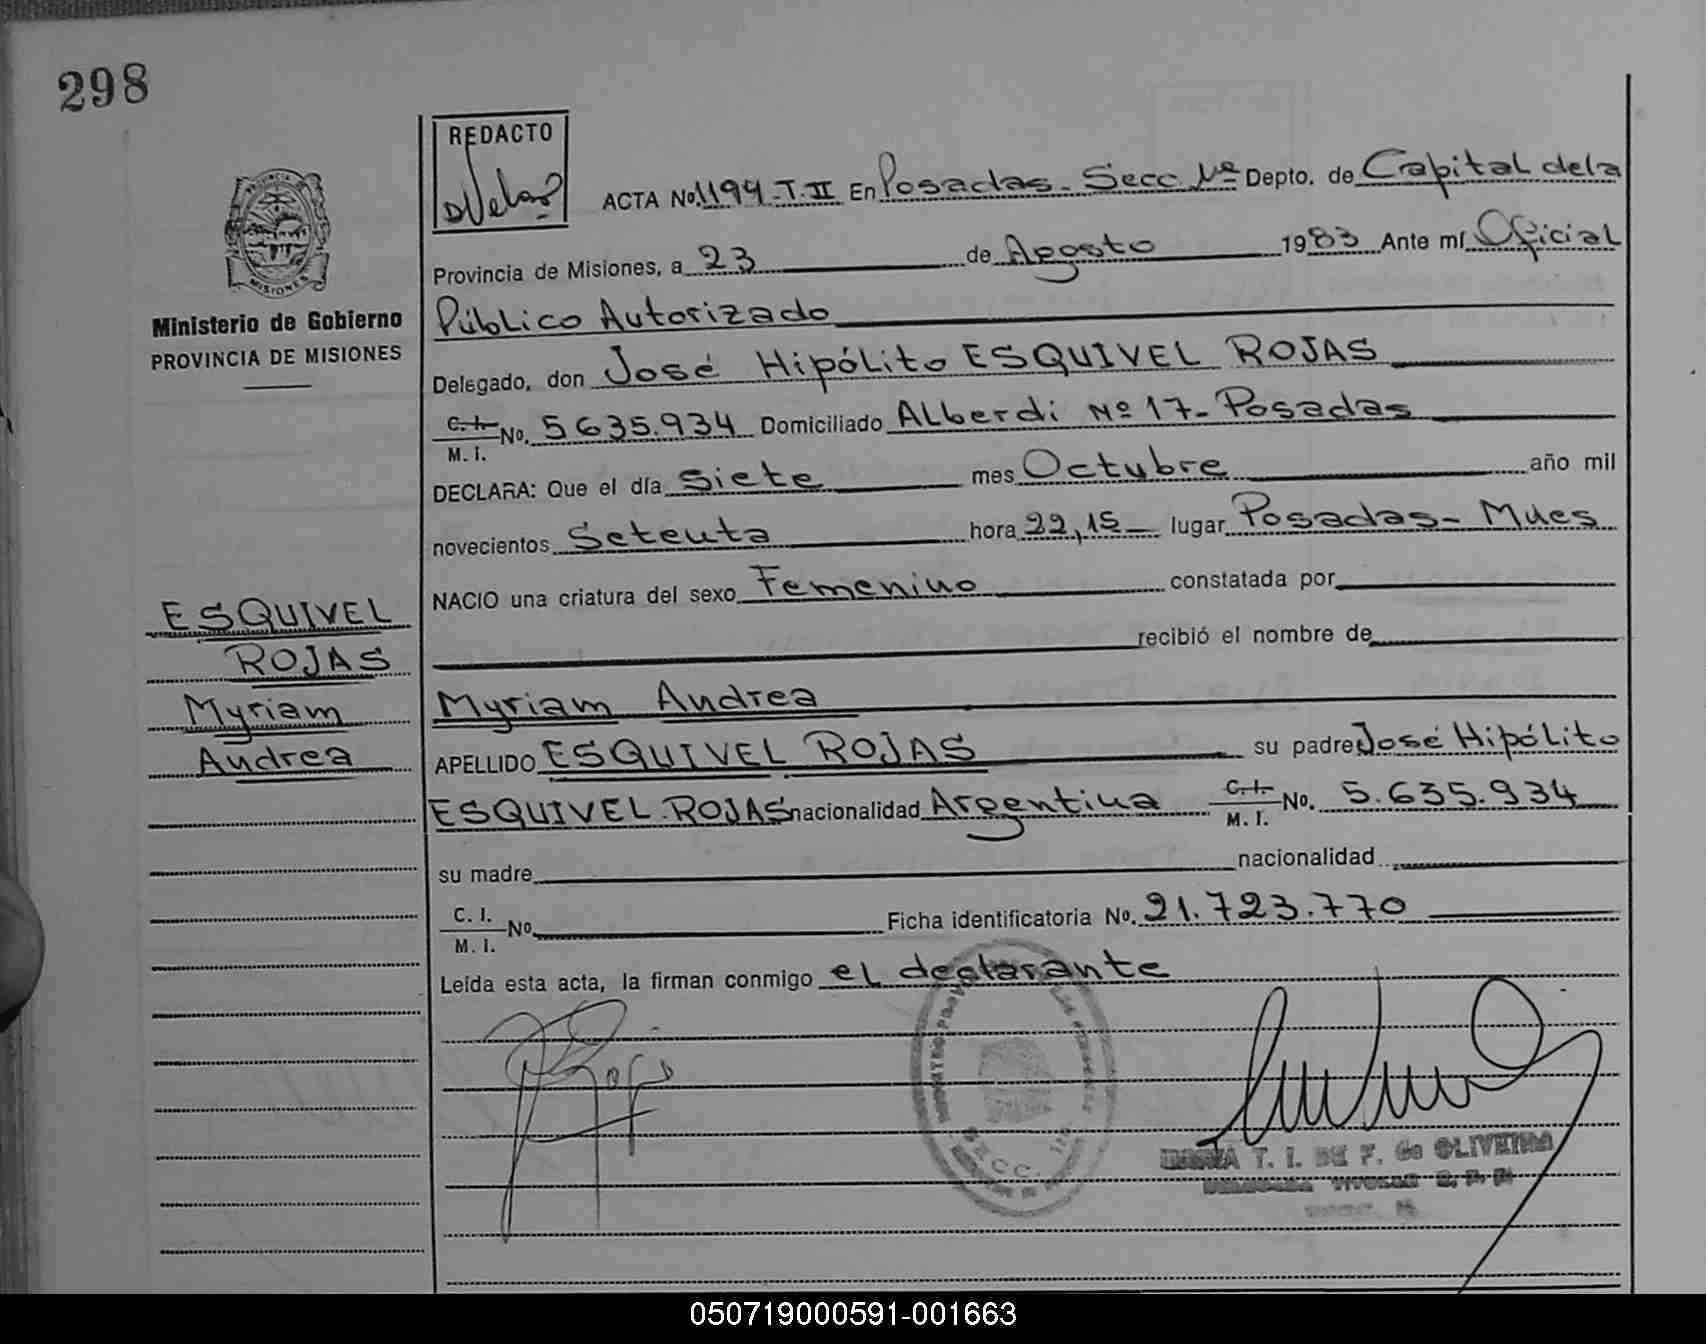 298
REDACTO
ACTA No. 1199-T.II En Posadas - Secc. 1ra Depto. de Capital de la
Provincia de Misiones, a 23 de Agosto 1983 Ante mí Oficial
Público Autorizado
Delegado, don José Hipólito ESQUIVEL ROJAS
C. I.
M. I. No. 5635.934 Domiciliado Alberdi Nº 17- Posadas
DECLARA: Que el día Siete mes Octubre año mil
novecientos Setenta hora 22,15 lugar Posadas- Mnes
NACIO una criatura del sexo Femenino constatada por
recibió el nombre de
Myriam Andrea
APELLIDO ESQUIVEL ROJAS su padre José Hipólito
ESQUIVEL ROJAS nacionalidad Argentina C. I.
M. I. No. 5.635.934
su madre nacionalidad
C. I.
M. I. No. Ficha identificatoria No. 21.723.770
Leída esta acta, la firman conmigo el declarante
PROVINCIA DE
MISIONES
Ministerio de Gobierno
PROVINCIA DE MISIONES
ESQUIVEL
ROJAS
Myriam
Andrea
SECC.
MARIA T. I. DE F. de OLIVEIRA
050719000591-001663